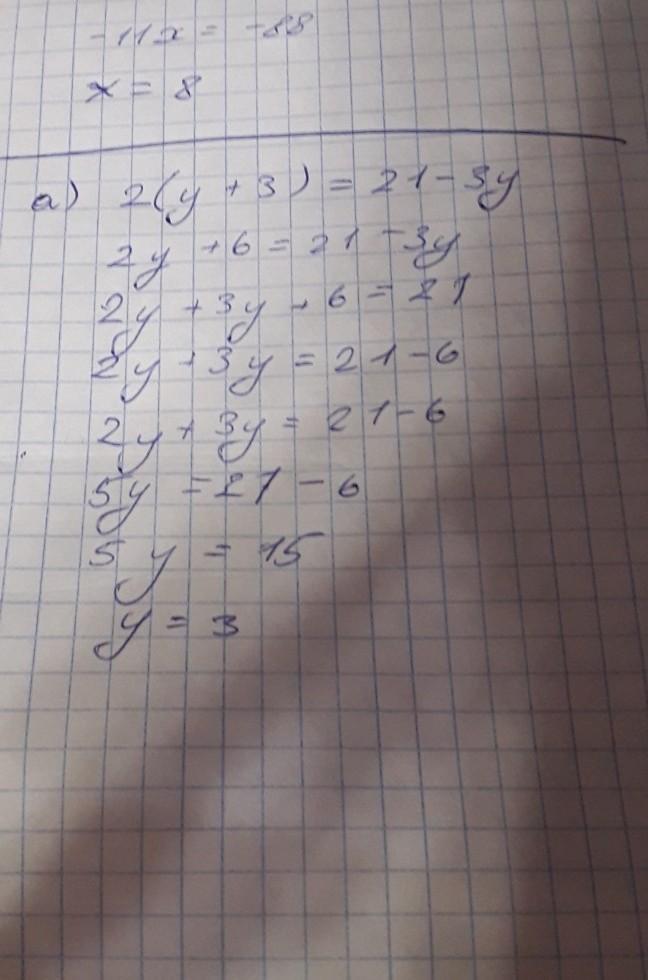 -11x = -88
x = 8
а) 2(y + 3) = 21 - 3y
2y + 6 = 21 - 3y
2y + 3y + 6 = 21
2y + 3y = 21 - 6
2y + 3y = 21 - 6
5y = 21 - 6
5y = 15
y = 3